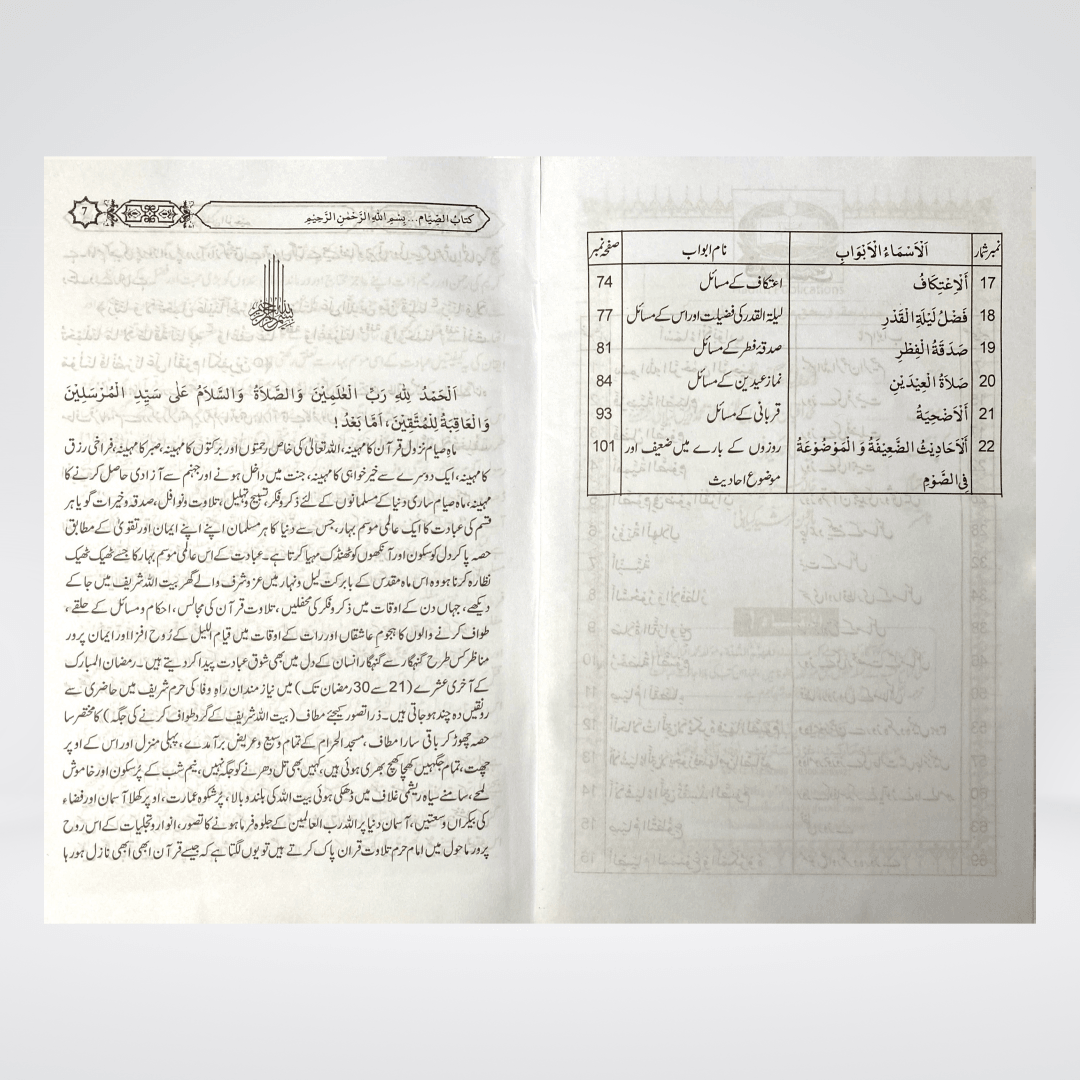 نمبر شمار اَلْاَسْمَاءُ الْاَبْوَابِ نام ابواب صفحہ نمبر
17 اَلْاِعْتِكَافُ اعتکاف کے مسائل 74
18 فَضْلُ لَيْلَةِ الْقَدْرِ لیلۃ القدر کی فضیلت اور اس کے مسائل 77
19 صَدَقَةُ الْفِطْرِ صدقہ فطر کے مسائل 81
20 صَلَاةُ الْعِيْدَيْنِ نماز عیدین کے مسائل 84
21 اَلْاُضْحِيَةُ قربانی کے مسائل 93
22 اَلْاَحَادِيْثُ الضَّعِيْفَةُ وَ الْمَوْضُوْعَةُ روزوں کے بارے میں ضعیف اور 101
فِى الصَّوْمِ موضوع احادیث
کتابُ الصِّیَام... بِسْمِ اللہِ الرَّحْمٰنِ الرَّحِیْمِ 7
بسم الله الرحمن الرحيم
اَلْحَمْدُ لِلّٰهِ رَبِّ الْعٰلَمِيْنَ وَالصَّلَاةُ وَالسَّلَامُ عَلٰى سَيِّدِ الْمُرْسَلِيْنَ
وَالْعَاقِبَةُ لِلْمُتَّقِيْنَ، اَمَّا بَعْدُ !
ماہِ صیام نزولِ قرآن کا مہینہ، اللہ تعالیٰ کی خاص رحمتوں اور برکتوں کا مہینہ، صبر کا مہینہ، فراخی رزق
کا مہینہ، ایک دوسرے سے خیر خواہی کا مہینہ، جنت میں داخل ہونے اور جہنم سے آزادی حاصل کرنے کا
مہینہ، ماہ صیام ساری دنیا کے مسلمانوں کے لئے ذکر و فکر، تسبیح و تہلیل، تلاوت و نوافل، صدقہ و خیرات گویا ہر
قسم کی عبادت کا ایک عالمی موسم بہار، جس سے دنیا کا ہر مسلمان اپنے اپنے ایمان اور تقویٰ کے مطابق
حصہ پا کر دل کو سکون اور آنکھوں کو ٹھنڈک مہیا کرتا ہے۔ عبادت کے اس عالمی موسم بہار کا جسے ٹھیک ٹھیک
نظارہ کرنا ہو وہ اس ماہ مقدس کے بابرکت لیل و نہار میں عز و شرف والے گھر بیت اللہ شریف میں جا کے
دیکھے، جہاں دن کے اوقات میں ذکر و فکر کی محفلیں، تلاوت قرآن کی مجالس، احکام و مسائل کے حلقے،
طواف کرنے والوں کا ہجومِ عاشقاں اور رات کے اوقات میں قیام اللیل کے رُوح افزا اور ایمان پرور
مناظر کس طرح گنہگار سے گنہگار انسان کے دل میں بھی شوق عبادت پیدا کر دیتے ہیں۔ رمضان المبارک
کے آخری عشرے (21 سے 30 رمضان تک) میں نیاز مندان راہِ وفا کی حرم شریف میں حاضری سے
رونقیں دہ چند ہو جاتی ہیں۔ ذرا تصور کیجئے مطاف (بیت اللہ شریف کے گرد طواف کرنے کی جگہ) کا مختصر سا
حصہ چھوڑ کر باقی سارا مطاف، مسجد الحرام کے تمام وسیع و عریض برآمدے، پہلی منزل اور اس کے اوپر
چھت، تمام جگہیں کھچا کھچ بھری ہوئی ہیں، کہیں بھی تل دھرنے کو جگہ نہیں، نیم شب کے پُرسکون اور خاموش
لمحے، سامنے سیاہ ریشمی غلاف میں ڈھکی ہوئی بیت اللہ کی بلند و بالا، پرشکوہ عمارت، اوپر کھلا آسمان اور فضاء
کی بیکراں وسعتیں، آسمان دنیا پر اللہ رب العالمین کے جلوہ فرما ہونے کا تصور، انوار و تجلیات کے اس روح
پرور ماحول میں امام حرم تلاوت قرآن پاک کرتے ہیں تو یوں لگتا ہے کہ جیسے قرآن ابھی ابھی نازل ہو رہا